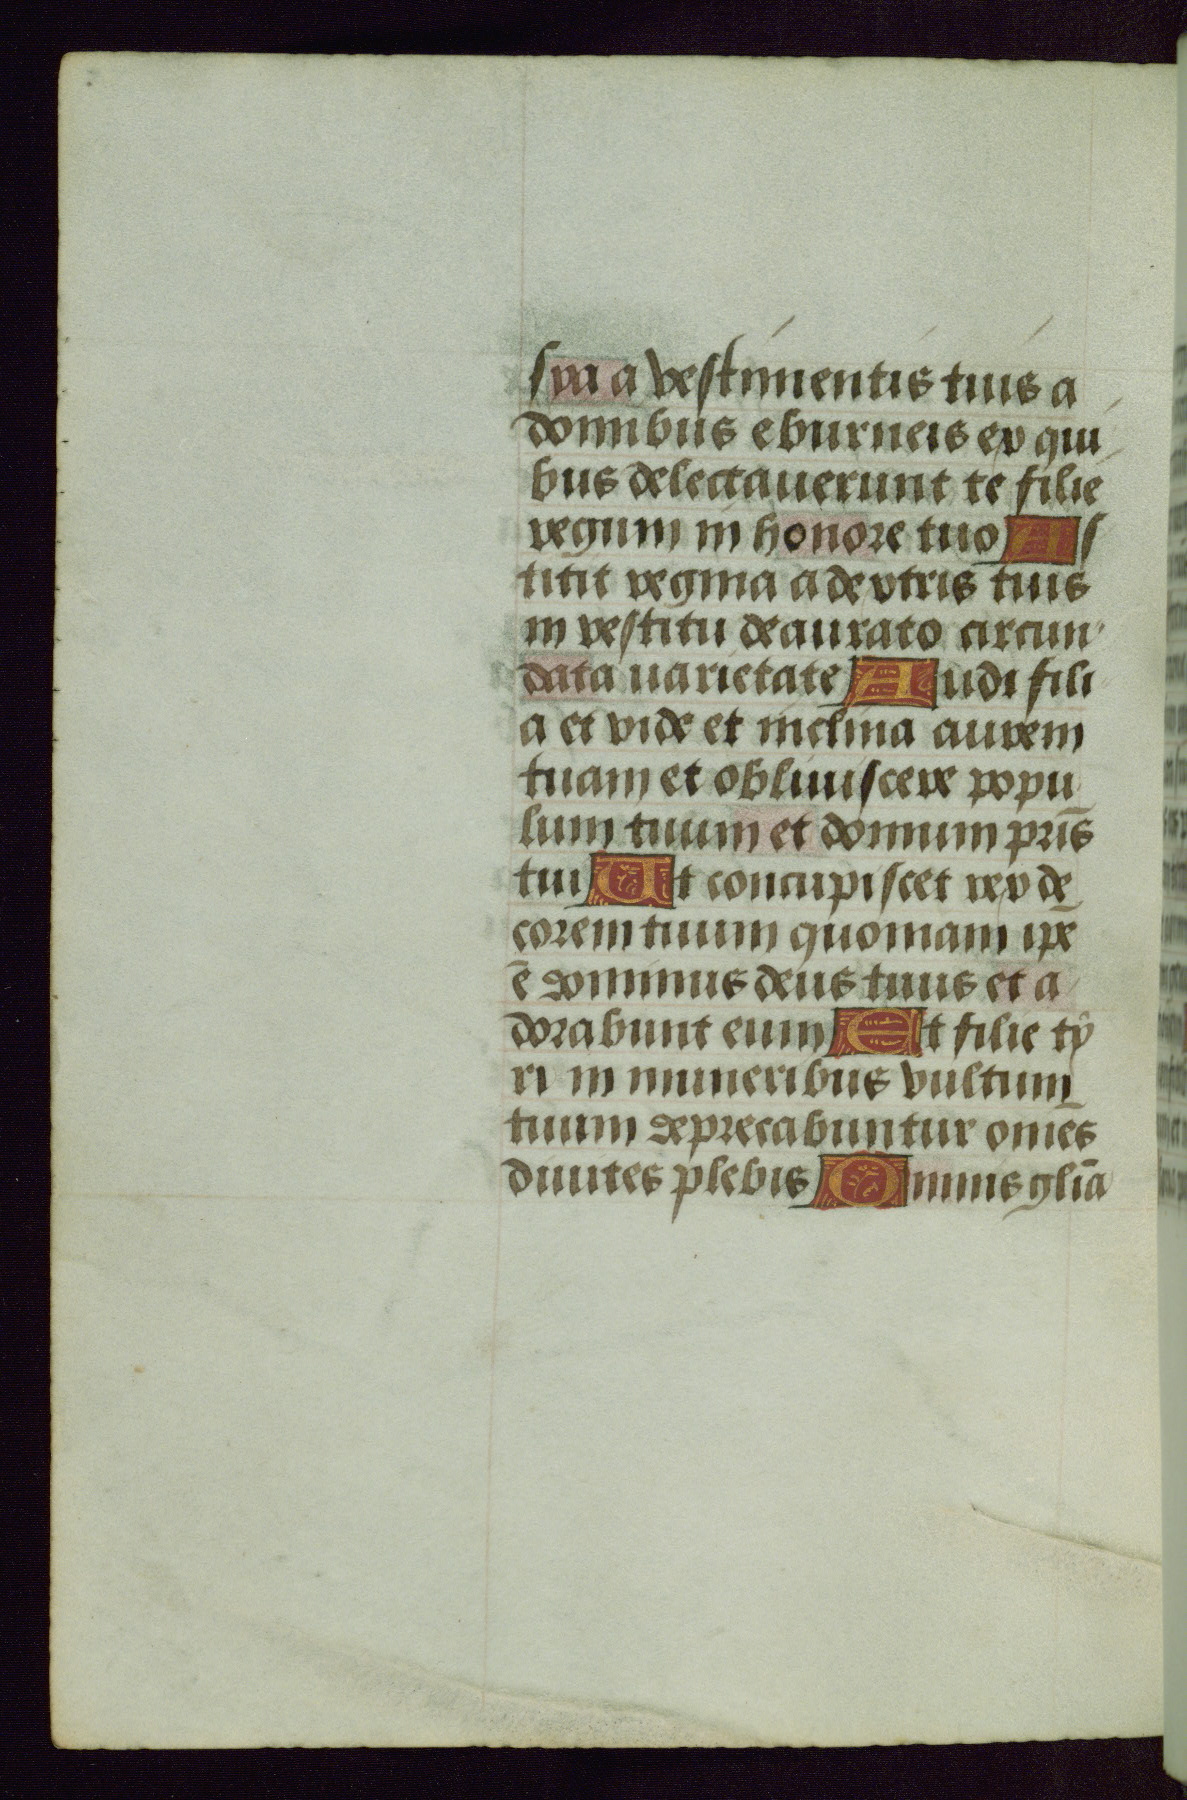 sia a vestimentis tuis a
domibus eburneis ex qui
bus delectauerunt te filie
regum in honore tuo As
titit regina a dextris tuis
in vestitu deaurato circun
data uarietate Audi fili
a et vide et inclina aurem
tuam et obliuiscere popu
lum tuum et domum pris̄
tui Et concupiscet rex de
corem tuum quoniam ip̄e
ē dominus deus tuus et a
dorabunt eum Et filie ty
ri in muneribus vultum
tuum deprecabuntur om̄es
diuites plebis Omnis gl̄ia